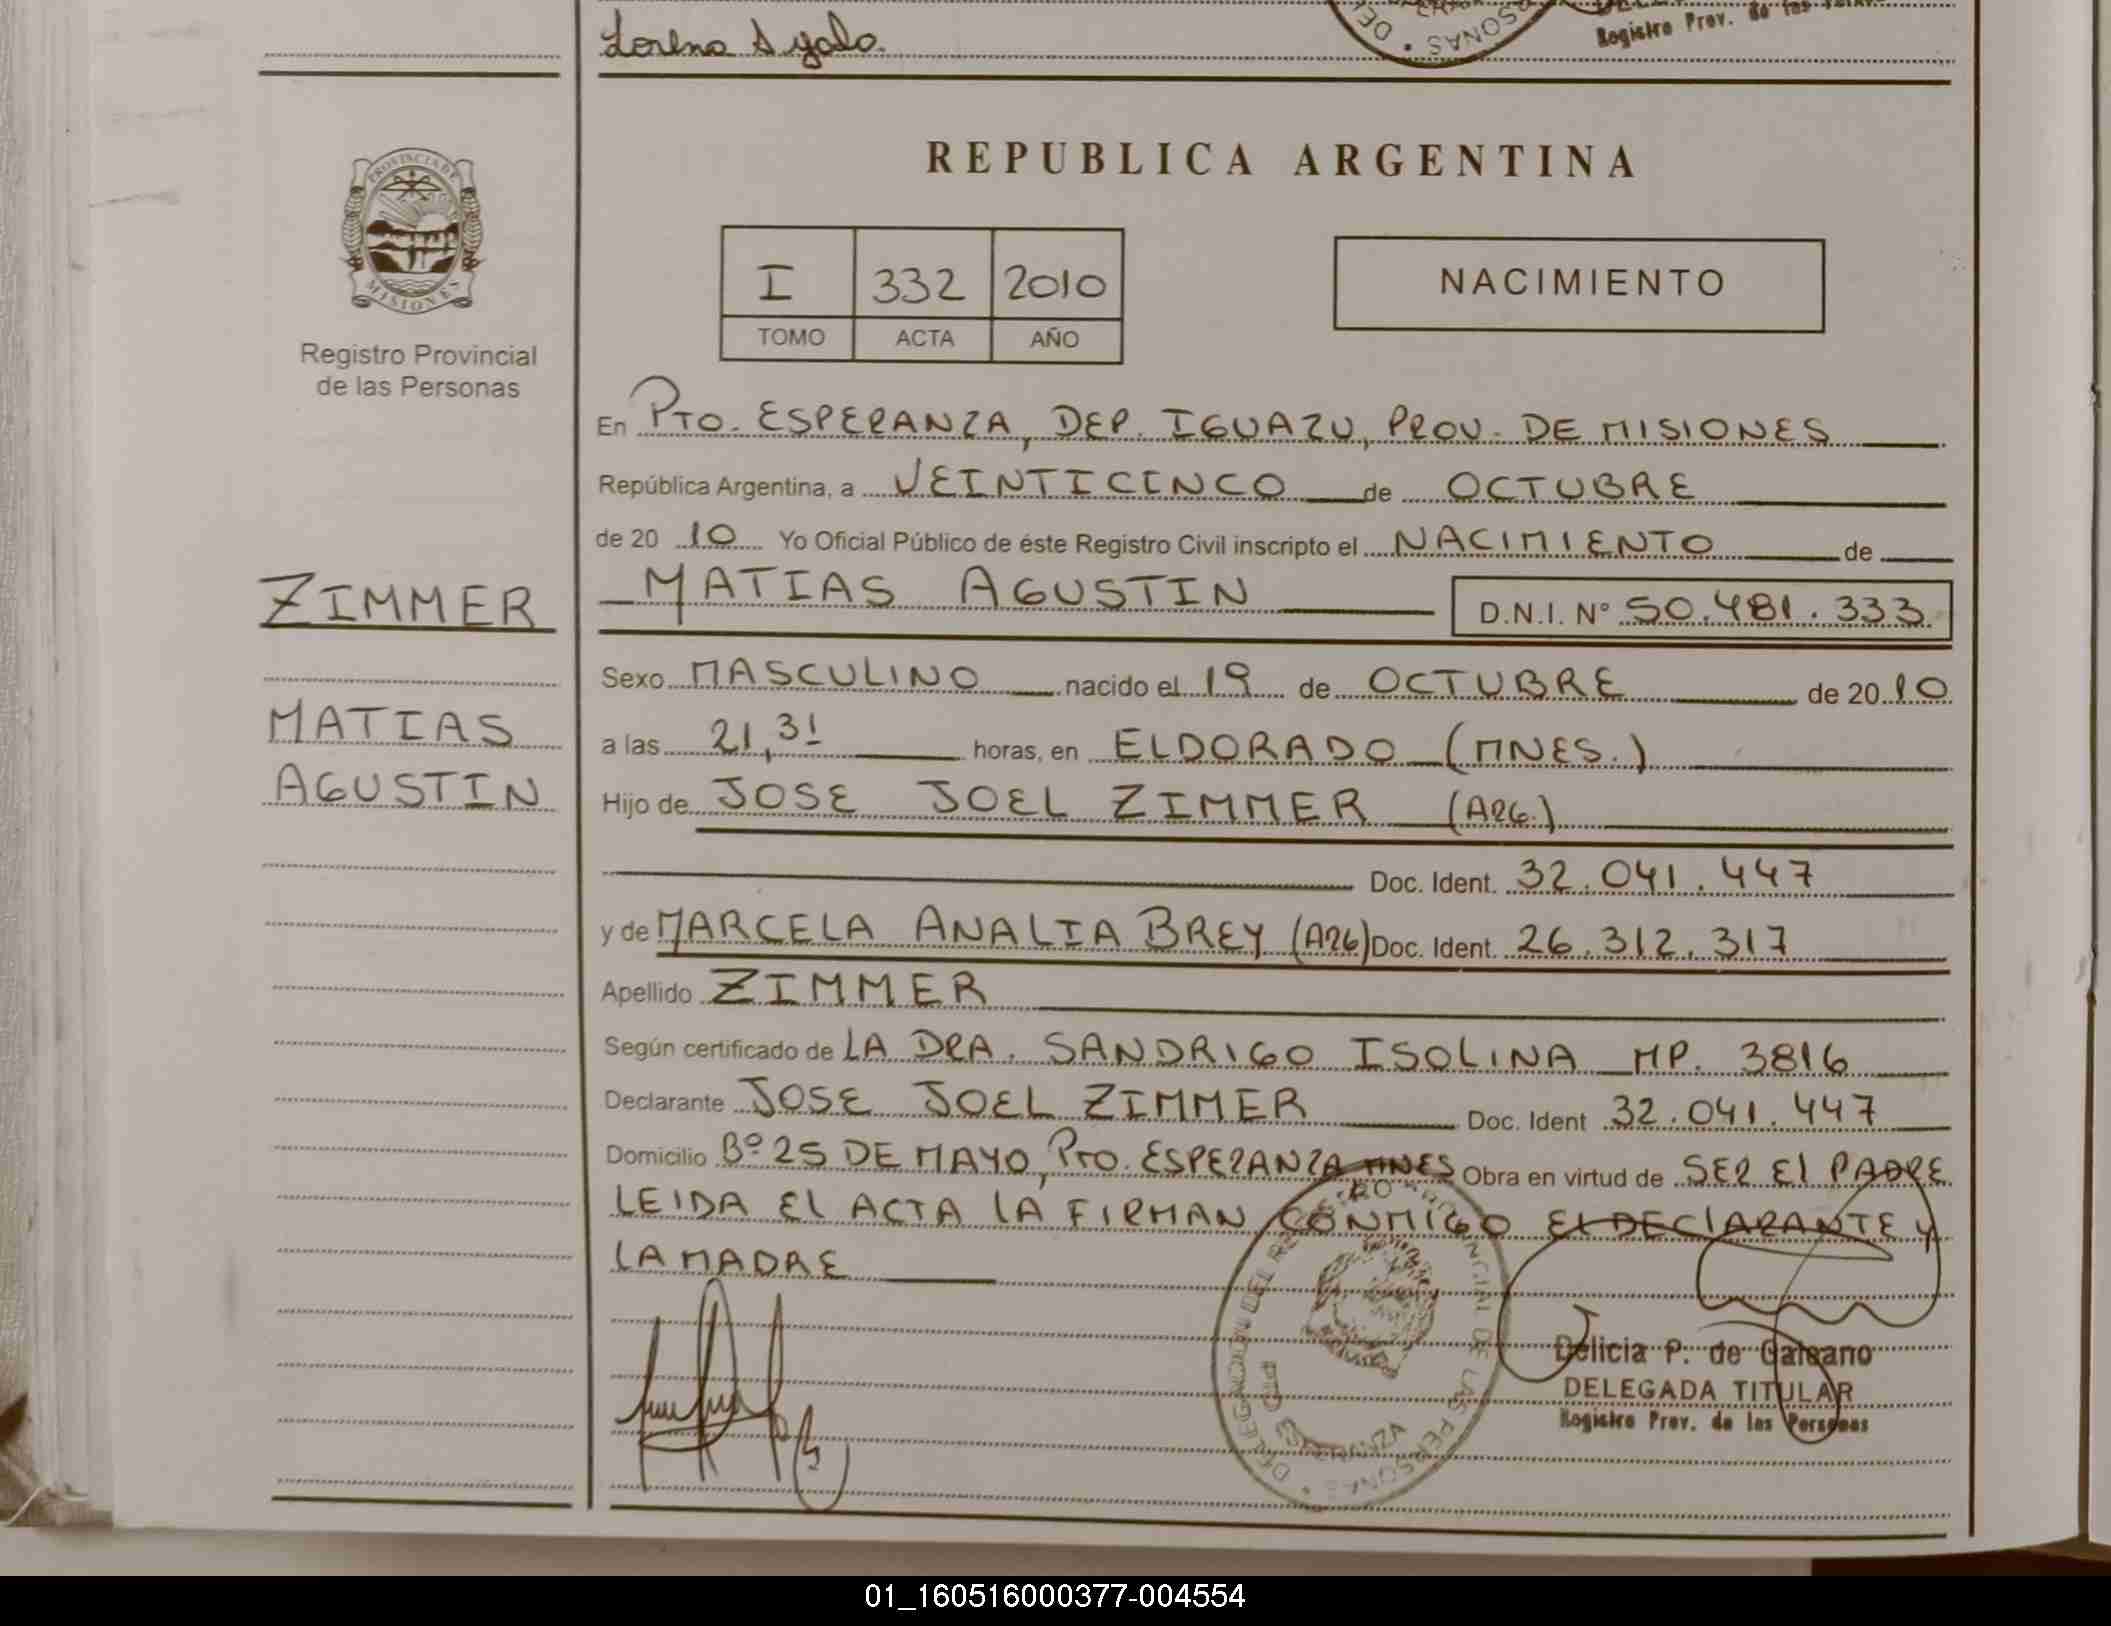 Lorena Ayala.
Registro Prov. de las
REPUBLICA ARGENTINA
PROVINCIA DE
MISIONES
Registro Provincial
de las Personas
I 332 2010
TOMO ACTA AÑO
NACIMIENTO
En PTO. ESPERANZA, DEP. IGUAZU, PROV. DE MISIONES
República Argentina, a VEINTICINCO de OCTUBRE
de 20 10 Yo Oficial Público de éste Registro Civil inscripto el NACIMIENTO de
ZIMMER
MATIAS AGUSTIN D.N.I. N° 50.481.333.
Sexo MASCULINO nacido el 19 de OCTUBRE de 20 10
MATIAS
a las 21,31 horas, en ELDORADO (MNES.)
AGUSTIN
Hijo de JOSE JOEL ZIMMER (ARG.)
Doc. Ident. 32.041.447
y de MARCELA ANALIA BREY (ARG) Doc. Ident. 26.312.317
Apellido ZIMMER
Según certificado de LA DRA. SANDRIGO ISOLINA MP. 3816
Declarante JOSE JOEL ZIMMER Doc. Ident 32.041.447
Domicilio Bº 25 DE MAYO, PTO. ESPERANZA MNES Obra en virtud de SER El PADRE
LEIDA El ACTA LA FIRMAN CONMIGO El DEClARANTE y
LA MADRE
Delicia P. de Galeano
DELEGADA TITULAR
Registro Prov. de las Personas
01_160516000377-004554